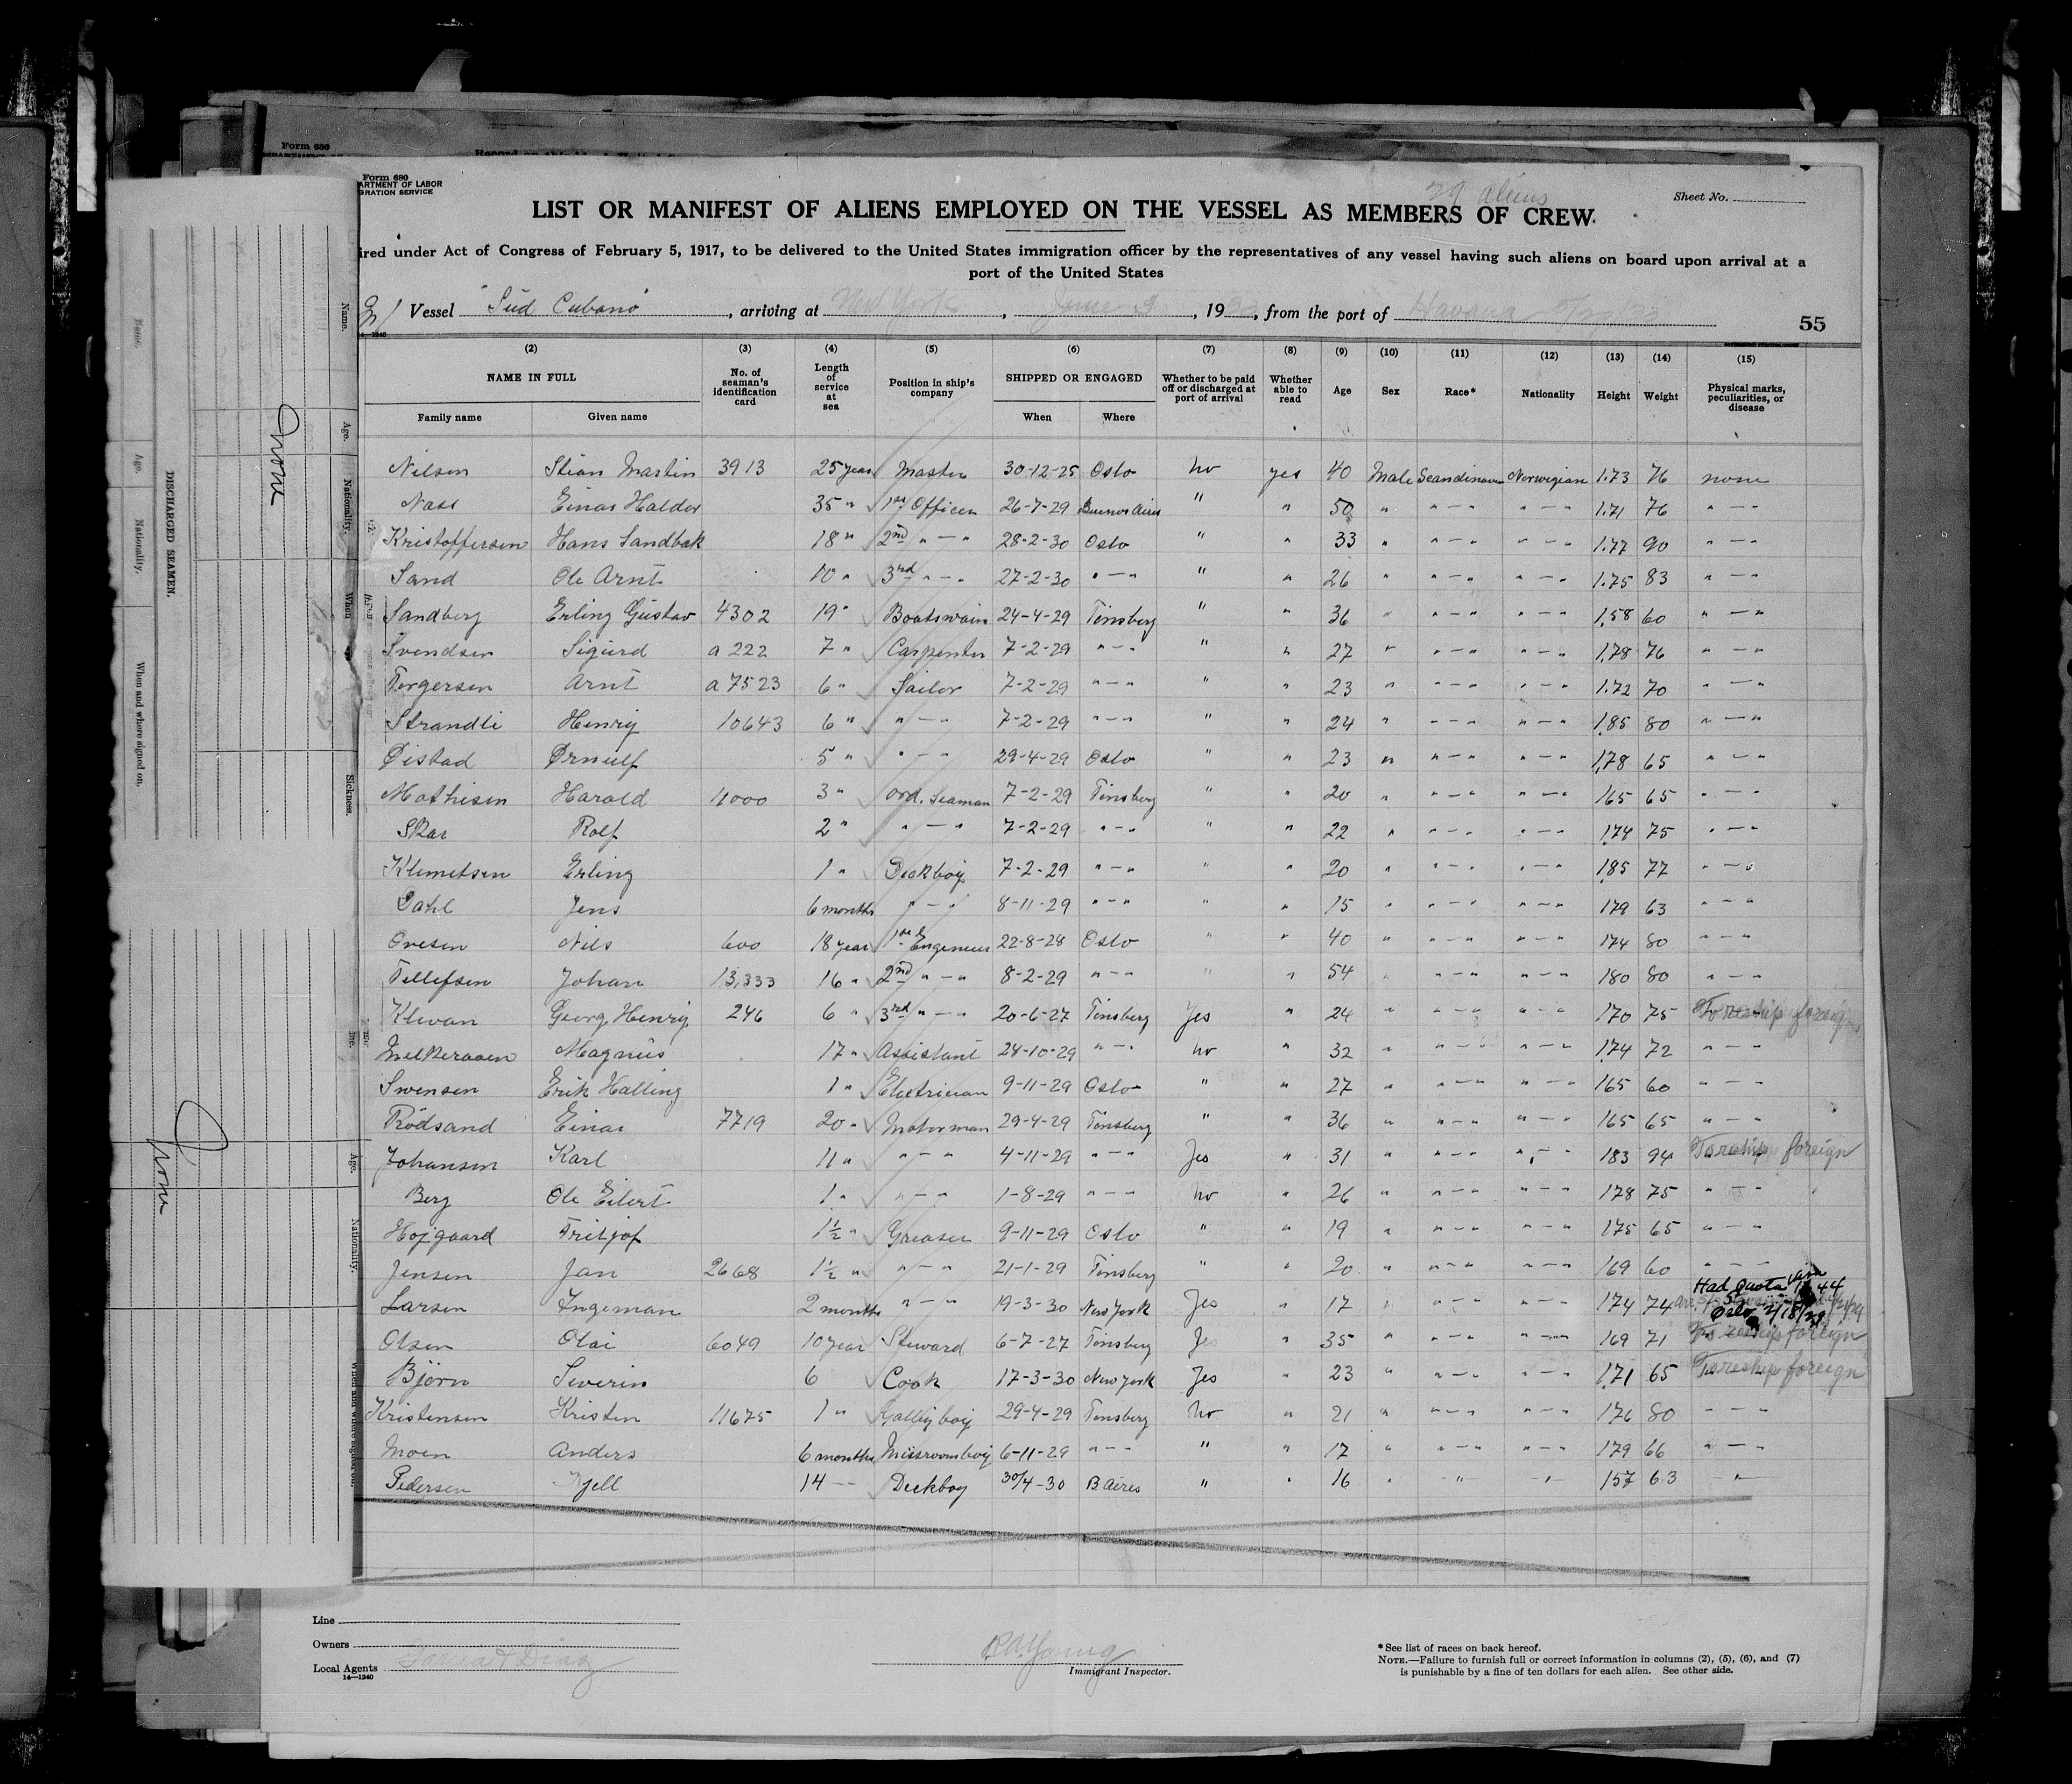 Form 680
Form 680
ARTMENT OF LABOR
GRATION SERVICE
29 aliens
Sheet No.
LIST OR MANIFEST OF ALIENS EMPLOYED ON THE VESSEL AS MEMBERS OF CREW.
ired under Act of Congress of February 5, 1917, to be delivered to the United States immigration officer by the representatives of any vessel having such aliens on board upon arrival at a
port of the United States
Vessel "Sud Cubano", arriving at New York, June 3, 19, from the port of Havana
55
(2) (3) (4) (5) (6) (7) (8) (9) (10) (11) (12) (13) (14) (15)
NAME IN FULL No. of seaman's identification card Length of service at sea Position in ship's company SHIPPED OR ENGAGED Whether to be paid off or discharged at port of arrival Whether able to read Age Sex Race* Nationality Height Weight Physical marks, peculiarities, or disease
Family name Given name When Where
Nilsen Stian Martin 3913 25 year Master 30-12-25 Oslo no yes 40 Male Scandinavian Norwegian 1.73 76 none
Nass Einar Haldor 35 " 1st Officer 26-7-29 Buenos Aires " " 50 " " — " " — " 1.71 76 " — "
Kristoffersen Hans Sandbak 18 " 2nd " — " 28-2-30 Oslo " " 33 " " — " " — " 1.77 90 " — "
Sand Ole Arnt 10 " 3rd " — " 27-2-30 " — " " " 26 " " — " " — " 1.75 83 " — "
Sandberg Erling Gustav 4302 19 " Boatswain 24-4-29 Tönsberg " " 36 " " — " " — " 1,58 60 " — "
Svendsen Sigurd a 222 7 " Carpenter 7-2-29 " — " " " 27 " " — " " — " 1,78 76 " — "
Torgersen Arnt a 7523 6 " Sailor 7-2-29 " — " " " 23 " " — " " — " 1.72 70 " — "
Strandli Henry 10643 6 " " — " 7-2-29 " — " " " 24 " " — " " — " 1,85 80 " — "
Öistad Örnulf 5 " " — " 29-4-29 Oslo " " 23 " " — " " — " 1,78 65 " — "
Mathisen Harald 11000 3 " Ord. Seaman 7-2-29 Tönsberg " " 20 " " — " " — " 165 65 " — "
Skar Rolf 2 " " — " 7-2-29 " — " " " 22 " " — " " — " 174 75 " — "
Klemetsen Erling 1 " Deckboy 7-2-29 " — " " " 20 " " — " " — " 185 77 " — "
Dahl Jens 6 months " — " 8-11-29 " — " " " 15 " " — " " — " 179 63 " — "
Ovesen Nils 600 18 year 1st Engineer 22-8-28 Oslo " " 40 " " — " " — " 174 80 " — "
Tellefsen Johan 13,333 16 " 2nd " — " 8-2-29 " — " " " 54 " " — " " — " 180 80 " — "
Klevan Georg Henry 246 6 " 3rd " — " 20-6-27 Tönsberg Yes " 24 " " — " " — " 170 75 To reship foreign
Magnus 17 " Assistant 24-10-29 " — " no " 32 " " — " " — " 174 72 " — "
Swensen Erik Halling 1 " Electrician 9-11-29 Oslo " " 27 " " — " " — " 165 60 " — "
Rödsand Einar 7719 20 " Motorman 29-4-29 Tönsberg " " 36 " " — " " — " 165 65 " — "
Johansen Karl 11 " " — " 4-11-29 " — " Yes " 31 " " — " " — " 183 94 To reship foreign
Berg Ole Eilert 1 " " — " 1-8-29 " — " no " 26 " " — " " — " 178 75 " — "
Hojgaard Fritjof 1½ " Greaser 9-11-29 Oslo " " 19 " " — " " — " 175 65 " — "
Jensen Jan 2668 1½ " " — " 21-1-29 Tönsberg " " 20 " " — " " — " 169 60 " — "
Larsen Ingeman 2 months " — " 19-3-30 New York Yes " 17 " " — " " — " 174 74 Had Quota visa Oslo 2/18/29
Olsen Olai 6049 10 year Steward 6-7-27 Tönsberg Yes " 35 " " — " " — " 169 71 To reship foreign
Björn Severin 6 Cook 17-3-30 New York Yes " 23 " " — " " — " 1,71 65 To reship foreign
Kristensen Kristen 11675 1 " Galley boy 29-4-29 Tönsberg no " 21 " " — " " — " 176 80 " — "
Moen Anders 6 months Messroomboy 6-11-29 " — " " " 17 " " — " " — " 179 66 " — "
Pedersen Kjell 14 — Deckboy 30/4-30 B. Aires " " 16 " " " 157 63 "
Line
Owners
Local Agents Garcia & Diaz
14—1240
R A Young
Immigrant Inspector.
*See list of races on back hereof.
NOTE.—Failure to furnish full or correct information in columns (2), (5), (6), and (7)
is punishable by a fine of ten dollars for each alien. See other side.
DISCHARGED SEAMEN.
Name. Age. Nationality. When and where signed on.
Name. Age. Nationality. When Sickness.
None
Age. Nationality. When and where signed on.
None